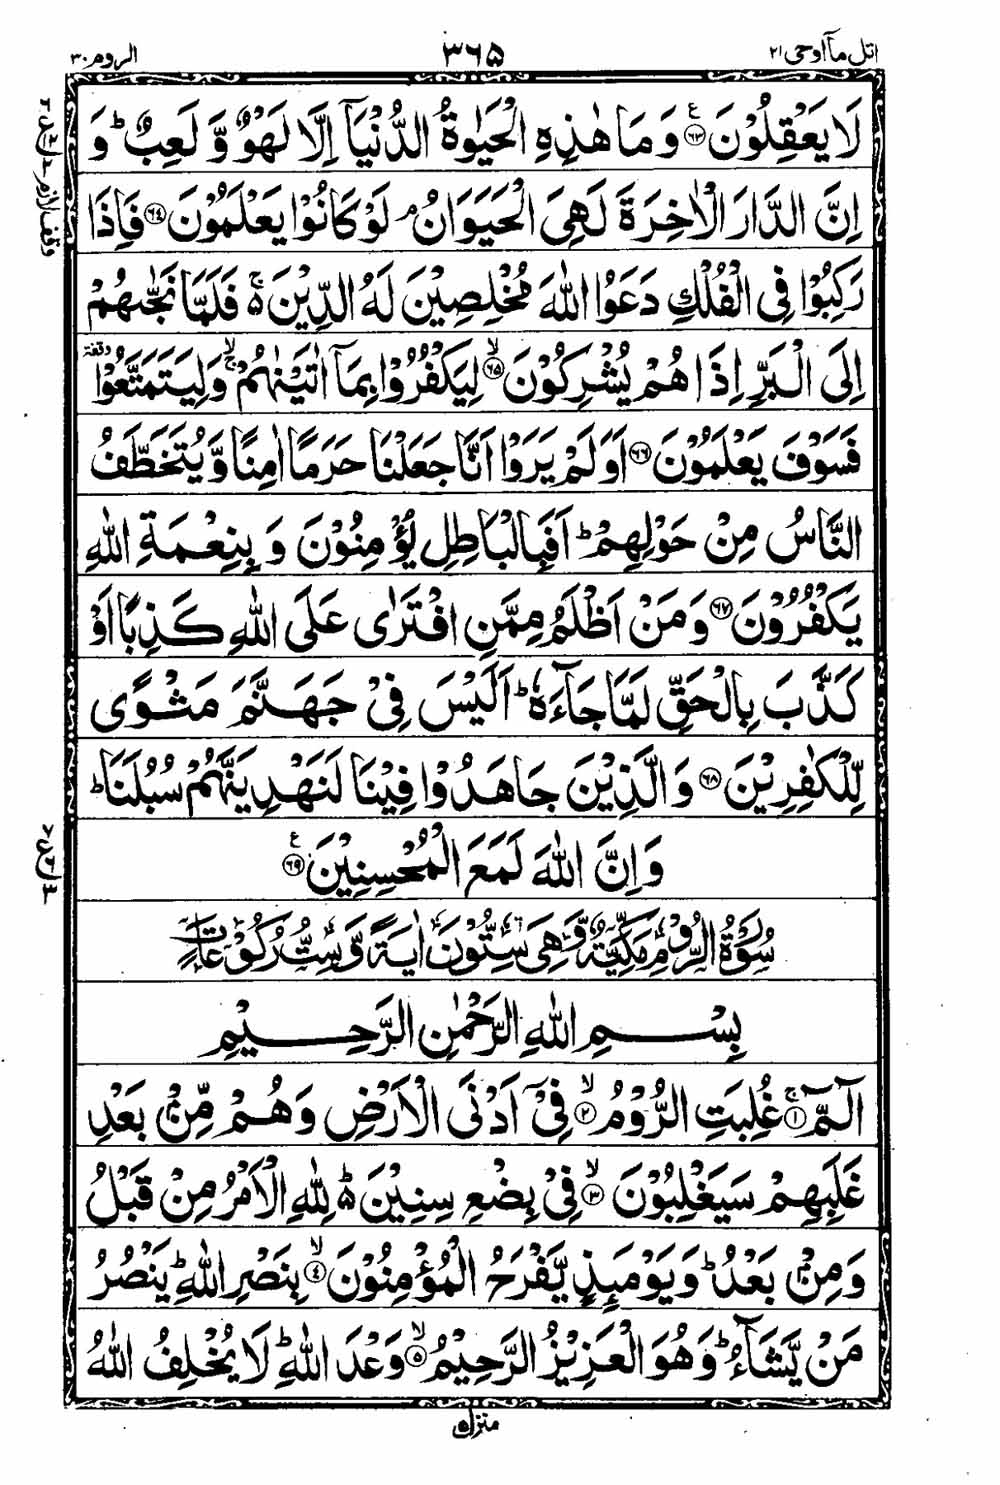 اتل مآاوحی ۲۱
۳۶۵
الروم ۳۰
لَا يَعْقِلُوْنَ ۶۳ ع وَمَا هٰذِهِ الْحَيٰوةُ الدُّنْيَآ اِلَّا لَهْوٌ وَّ لَعِبٌ ؕ وَ
اِنَّ الدَّارَ الْاٰخِرَةَ لَهِىَ الْحَيَوَانُ ۘ لَوْ كَانُوْا يَعْلَمُوْنَ ۶۴ فَاِذَا
رَكِبُوْا فِى الْفُلْكِ دَعَوُا اللّٰهَ مُخْلِصِيْنَ لَهُ الدِّيْنَ ۵ ۚ فَلَمَّا نَجّٰىهُمْ
اِلَى الْبَرِّ اِذَا هُمْ يُشْرِكُوْنَ ۶۵ ۙ لِيَكْفُرُوْا بِمَآ اٰتَيْنٰهُمْ ۙۚ وَلِيَتَمَتَّعُوْا وقفة
فَسَوْفَ يَعْلَمُوْنَ ۶۶ اَوَلَمْ يَرَوْا اَنَّا جَعَلْنَا حَرَمًا اٰمِنًا وَّيُتَخَطَّفُ
النَّاسُ مِنْ حَوْلِهِمْ ؕ اَفَبِالْبَاطِلِ يُؤْمِنُوْنَ وَ بِنِعْمَةِ اللّٰهِ
يَكْفُرُوْنَ ۶۷ وَمَنْ اَظْلَمُ مِمَّنِ افْتَرٰى عَلَى اللّٰهِ كَذِبًا اَوْ
كَذَّبَ بِالْحَقِّ لَمَّا جَآءَهٗ ؕ اَلَيْسَ فِىْ جَهَنَّمَ مَثْوًى
لِّلْكٰفِرِيْنَ ۶۸ وَالَّذِيْنَ جَاهَدُوْا فِيْنَا لَنَهْدِيَنَّهُمْ سُبُلَنَا ؕ
وَاِنَّ اللّٰهَ لَمَعَ الْمُحْسِنِيْنَ ۶۹ ع
سُوْرَةُ الرُّوْمِ مَكِّيَّةٌ وَّهِىَ سِتُّوْنَ اٰيَةً وَّسِتُّ رُكُوْعَاتٍ
بِسْمِ اللّٰهِ الرَّحْمٰنِ الرَّحِيْمِ
الٓمّٓ ۱ ۚ غُلِبَتِ الرُّوْمُ ۲ ۙ فِىْٓ اَدْنَى الْاَرْضِ وَهُمْ مِّنْۢ بَعْدِ
غَلَبِهِمْ سَيَغْلِبُوْنَ ۳ ۙ فِىْ بِضْعِ سِنِيْنَ ۵ ؕ لِلّٰهِ الْاَمْرُ مِنْ قَبْلُ
وَمِنْۢ بَعْدُ ؕ وَيَوْمَئِذٍ يَّفْرَحُ الْمُؤْمِنُوْنَ ۴ ۙ بِنَصْرِ اللّٰهِ ؕ يَنْصُرُ
مَنْ يَّشَآءُ ؕ وَهُوَ الْعَزِيْزُ الرَّحِيْمُ ۵ ۙ وَعْدَ اللّٰهِ ؕ لَا يُخْلِفُ اللّٰهُ
وقف لازم
ع
ع
منزل ۵